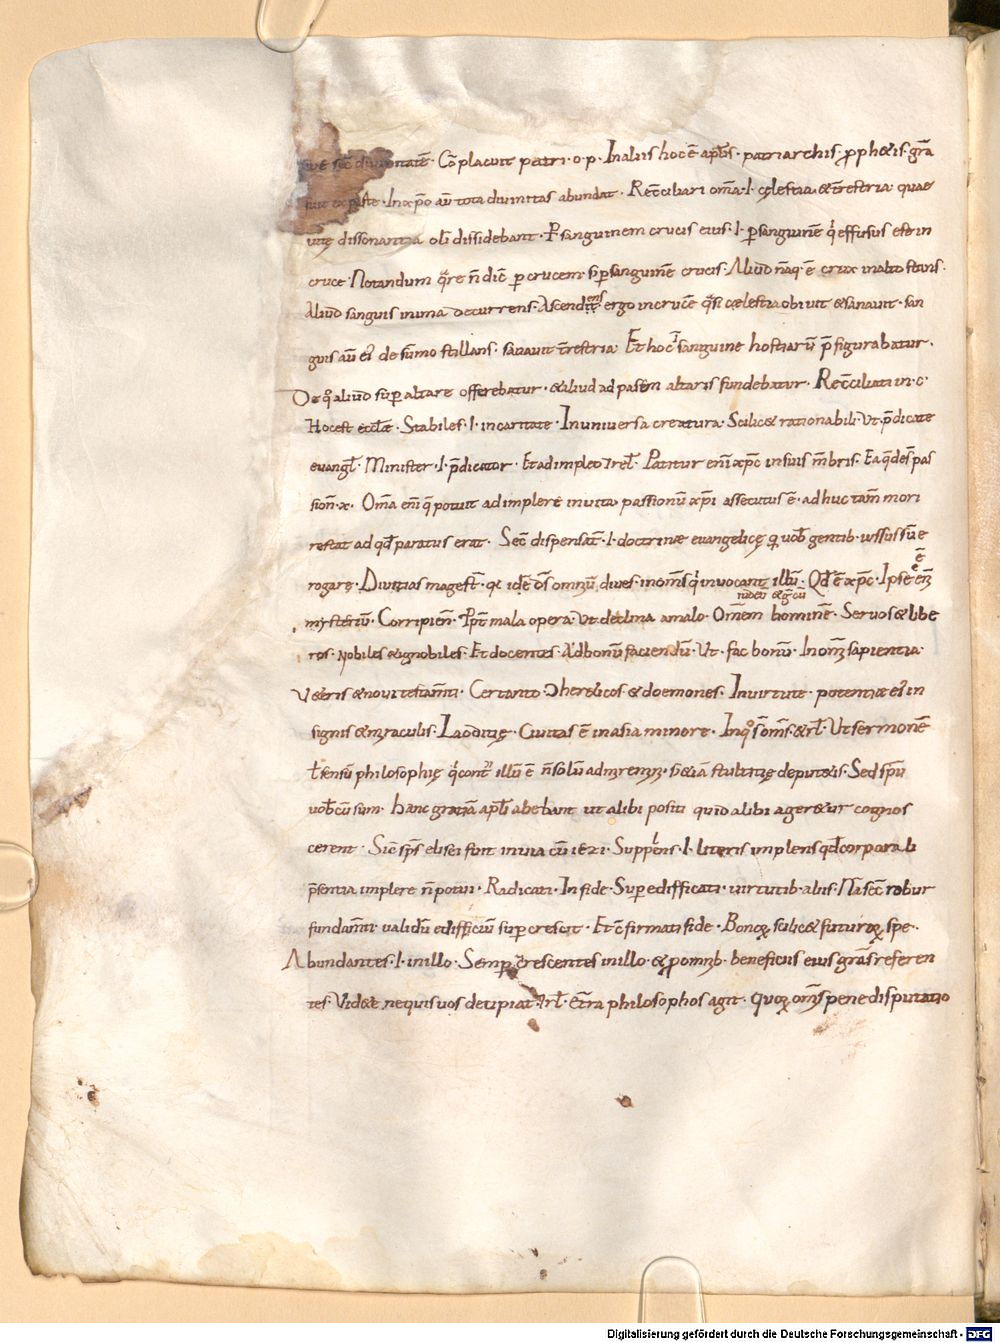 sec̄ divinitatē · Cō placuit patri · o · p · In aliis hoc ē aptīs · patriarchis · ꝓph&is · gr̄a
fuit ex parte · In xp̄o aū tota divinitas abundat · Recc̄iliari om̄a · I · cęlestia · & tr̄estria · quae
vitę dissonantia oli dissidebant · Ꝑ sanguinem crucis eius · I · ꝑ sanguinē qͥ effusus est in
cruce · Notandum qͣre n̄ dic̄ ꝑ crucem · s; ꝑ sanguinē crucis · Aliud nāq · ē crux in alto stans ·
Aliud sanguis in ima decurrens · Ascendens ergo in crucē qͣsi cęlestia obivit & sanavit · san
guis aū ei᾽ de sūmo stillans · sanavit tr̄estria · Et hoc ī sanguine hostiarū p̄figurabatur ·
De qͦ aliud sup altare offerebatur · & aliud ad pasem altaris fundebatur · Recc̄iliati in · c᾽
Hoc est eccl̄ae · Stabiles · I · in caritate · In universa creatura · Scilic& rationabili · Ut p̄dicate
evangl̄ · Minister · I · p̄dicator · Et adimpleo · rel̄ · Patitur eni xp̄c in suis mbris · Ea q̄ des̄ pas
sion̄ · x · Om̄a eni q̄ potuit adimplere in vita passionū xp̄i assecutus ē · adhuc tam̄ mori
restat ad qd̄ paratus erat · Sec̄ dispensat̄ · I · doctrinae evangelicę q̨ vob̄ gentib · iussus sū e
rogarę · Divitias magest̄ · qͥ idē ds̄ omniū dives in om̄s qͥ invocant illū · Qd̄ ē xp̄c · Ipse ē em̄
ē
iudeū & grēcū
mysteriū · Corripien̄ · Ꝓpt̄ mala opera · Ut declina a malo · Om̄em hominē · Servos & libe
ros · Nobiles & ignobiles · Et docentes · Ad bonū faciendū · Ut · fac bonū · In om̄i sapientia
V&eris & novi testam̄ti · Certanto · Ɔ her&icos & doemones · In virtute · potentiae ei᾽ in
signis & miraculis · Laoditię · Civitas ē in asia minore · In qͦ s̄ om̄s · & rl̄ · Ut sermonē
l̄ sensū philosophię qͥ contͣ illū ē n̄ solū admiremini · s; etiā stultitię deput&is · Sed spū
vob̄cū sum · hanc gratiā apl̄i abebant ut alibi positi quid alibi ager&ur cognos
cerent · Sic̄ sp̄s elisei fuit in via cū iezi · Supplens · I · literis implens qd̄ corporali
p̄sentia implere n̄ potui · Radicati · In fide · Superedifficati · virtutib · aliis · Nā sec̄ robur
fundam̄ti validū edifficiū superescit · Et c̄firmati fide · Bonoꝝ scilic& futuroꝝ spe ·
Abundantes · I · in illo · Semper crescentes in illo · & ꝓ omib · beneficiis eius gras̄ referen
tes · Vid&e ne quis vos decipiat · rl̄ · Ctr̄a philosophos agit · Quoꝝ om̄s pene disputatio
Digitalisierung gefördert durch die Deutsche Forschungsgemeinschaft - DFG